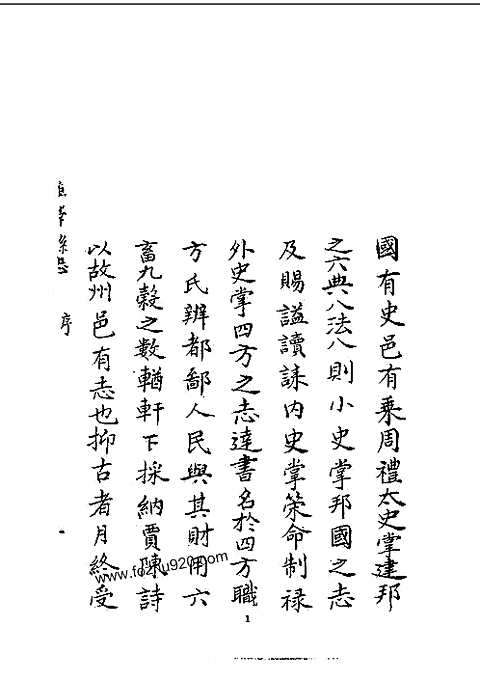 國有史邑有乘周禮太史掌建邦
之六典八法八則小史掌邦國之志
及賜謚讀誄內史掌策命制祿
外史掌四方之志達書名於四方職
方氏辨都鄙人民與其財用六
畜九穀之數輶軒下採納賈陳詩
以故州邑有志也抑古者月終受
序
1